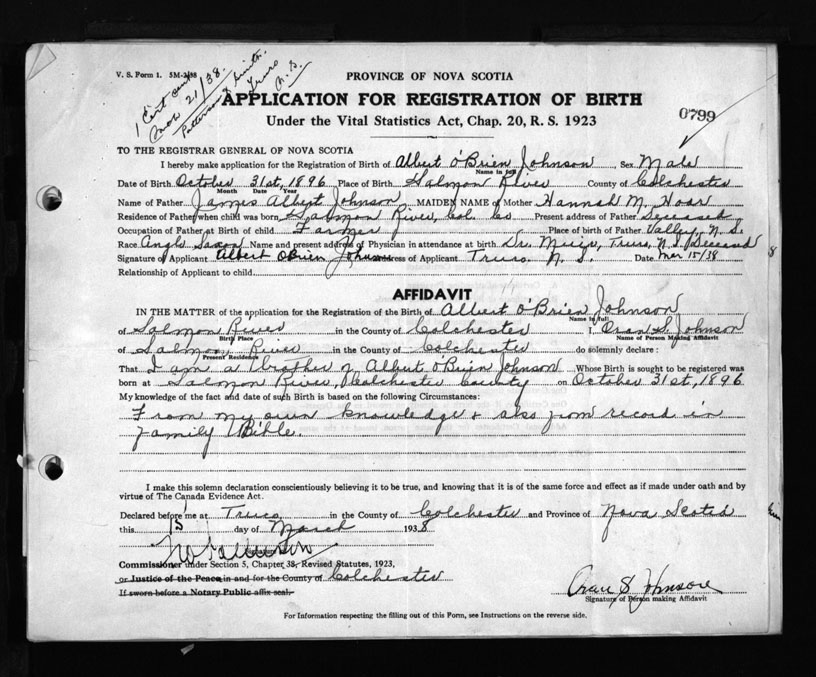 V. S. Form 1. 5M-2-38
1 Cert sent
Mar 21/38.
Patterson & Smith.
Truro
N. S.
PROVINCE OF NOVA SCOTIA
APPLICATION FOR REGISTRATION OF BIRTH
0799
Under the Vital Statistics Act, Chap. 20, R. S. 1923
TO THE REGISTRAR GENERAL OF NOVA SCOTIA
I hereby make application for the Registration of Birth of Albert O'Brien Johnson, Sex Male
Name in full
Date of Birth October 31st, 1896 Place of Birth Salmon River County of Colchester
Month Date Year
Name of Father James Albert Johnson MAIDEN NAME of Mother Hannah M. Hoar
Residence of Father when child was born Salmon River, Col. Co Present address of Father Deceased
Occupation of Father at Birth of child Farmer Place of birth of Father Valley, N. S.
Race Anglo Saxon Name and present address of Physician in attendance at birth Dr. Muir, Truro, N. S. Deceased
Signature of Applicant Albert OBrien Johnson Address of Applicant Truro. N. S. Date Mar 15/38
Relationship of Applicant to child
AFFIDAVIT
IN THE MATTER of the application for the Registration of the Birth of Albert O'Brien Johnson
Name in full
of Salmon River in the County of Colchester I, Oran S. Johnson
Birth Place Name of Person Making Affidavit
of Salmon River in the County of Colchester do solemnly declare:
Present Residence
That I am a brother of Albert O'Brien Johnson Whose Birth is sought to be registered was
born at Salmon River, Colchester County on October 31st, 1896
My knowledge of the fact and date of such Birth is based on the following Circumstances:
From my own knowledge & also from record in
family Bible.
I make this solemn declaration conscientiously believing it to be true, and knowing that it is of the same force and effect as if made under oath and by
virtue of The Canada Evidence Act.
Declared before me at Truro in the County of Colchester and Province of Nova Scotia
this 15 day of March 1938
Commissioner under Section 5, Chapter 38, Revised Statutes, 1923,
or Justice of the Peace in and for the County of Colchester
If sworn before a Notary Public affix seal.
Oran S Johnson
Signature of Person making Affidavit
For Information respecting the filling out of this Form, see Instructions on the reverse side.